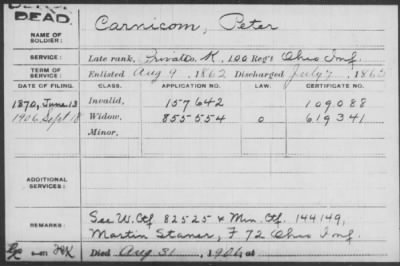 DEAD.
Carnicom, Peter
NAME OF SOLDIER:
SERVICE: Late rank, Private Co. K, 100 Reg't Ohio Inf.
TERM OF SERVICE: Enlisted Aug 9, 1862 Discharged July 7, 186
DATE OF FILING. CLASS. APPLICATION NO. LAW. CERTIFICATE NO.
1870, June 13 Invalid, 157642 109088
1906 Sept 18 Widow, 855554 O 619341
Minor,
ADDITIONAL SERVICES:
See W. Ctf 82525 & Min. Ctf. 144149,
REMARKS: Martin Staner, F 72 Ohio Inf.
Died Aug 31, 1906 at